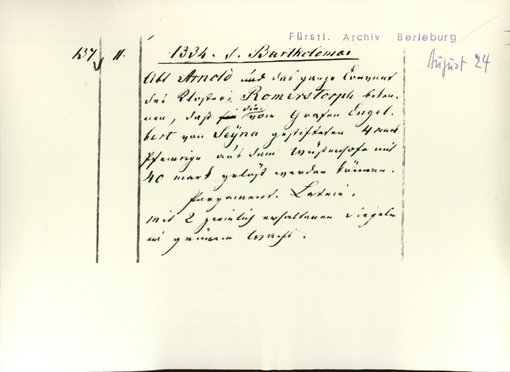 Fürstl. Archiv Berleburg
137 II. 1334. s. Bartholomae
August 24
Abt Arnold und das ganze Convent
des Klosters Romerstorph beken-
nen, daß die vom Grafen Engel-
bert von Seyna gestifteten 4 mark
Pfennige aus dem Wüstenhofe mit
40 mark gelöst werden können.
Pergament. Latein.
mit 2 ziemlich erhaltenen Siegeln
in grünem Wachs.